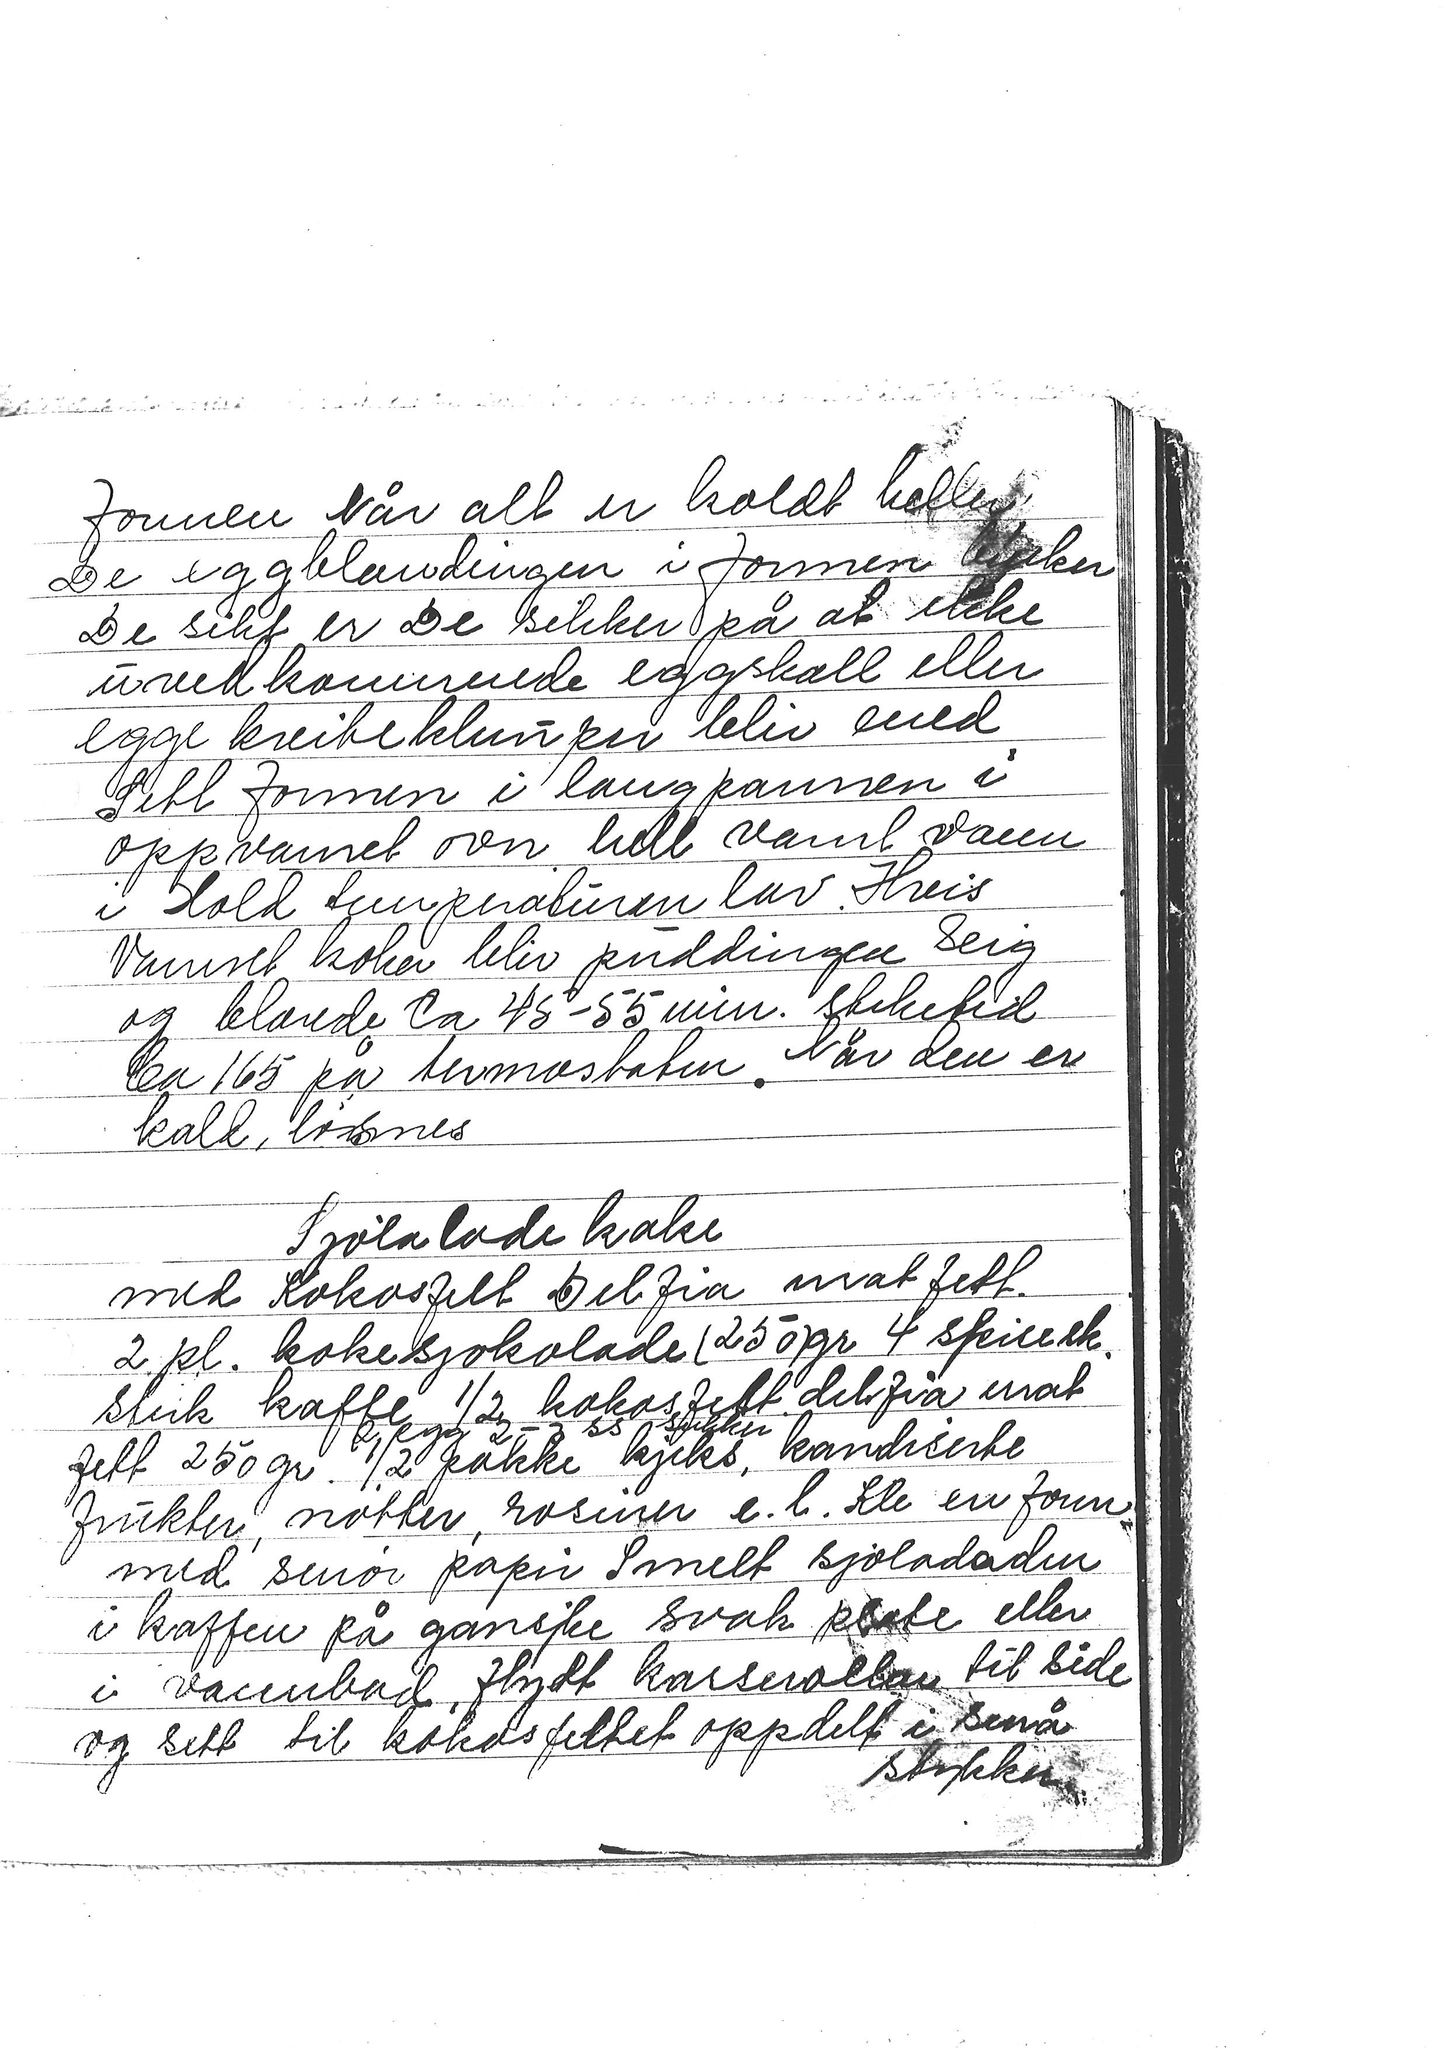 formen Når alt er koldt heller
De eggblandingen i formen bruker
De sikt er De sikker på at ikke
uvedkommende eggskall eller
egge hviteklumper bliv med
Sett formen i langpannen i
oppvarmet ovn hell varmt vann
i Hold temperaturen lav. Hvis
Vannet koker bliv puddingen Seig
og blæreде Ca 45-55 min. steketid
Ca 165 på termostaten. Når den er
kald, løsnes
Sjolalade kake
med Kokosfett Delfia matfett.
2 pl. kokesjokolade (250)gr 4 spisesk.
sterk kaffe 1/2 kokosfett delfia mat
2 egg 2-3 ss sukker
fett 250 gr. 1/2 pakke kjeks, kandiserte
frukter, nøtter, rosiner e.l. Kle en form
med smør papir Smelt sjoladaden
i kaffen på ganske svak plate eller
i vannbad, flytt kasserollen til side
og sett til kokosfettet oppdelt i små
stykker